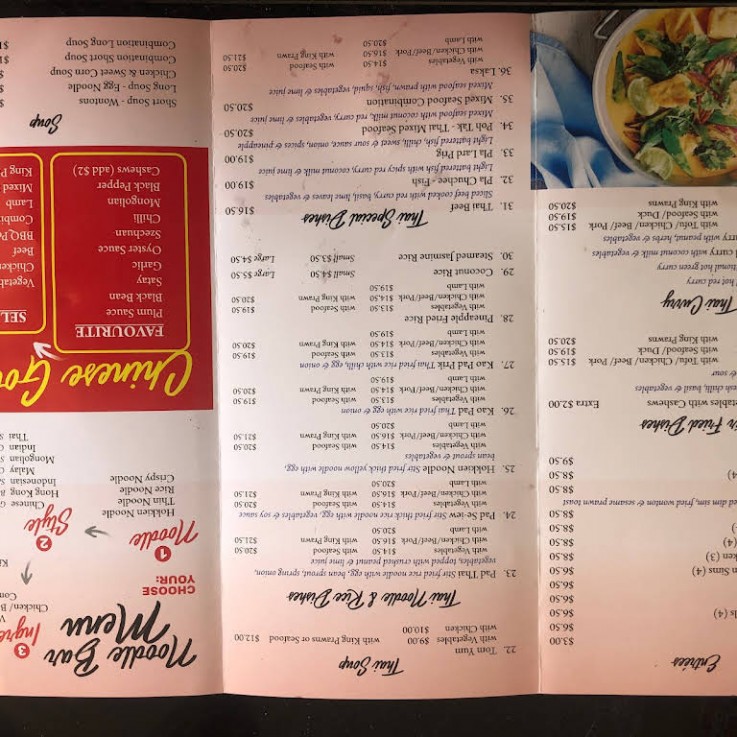 Entrées
$3.00
$6.50
ls (4) $6.50
$6.50
Sims (4) $6.50
ken (3) $8.50
(4) $8.50
$8.50
ed dim sim, fried wonton & sesame prawn toast
$8.50
(4) $8.50
$9.50
ir Fried Dishes
etables with Cashews Extra $2.00
esh chilli, basil & vegetables
& sour
with Tofu / Chicken/ Beef/ Pork $15.50
with Seafood/ Duck $19.50
with King Prawns $20.50
Thai Curry
hot red curry
tional hot green curry
d curry with coconut milk & vegetables
rry with peanut, herbs & vegetables
with Tofu / Chicken/ Beef/ Pork $15.50
with Seafood/Duck $19.50
with King Prawns $20.50
Thai Soup
22. Tom Yum
with Vegetables $9.00 with King Prawns or Seafood $12.00
with Chicken $10.00
Thai Noodle & Rice Dishes
23. Pad Thai Stir fried rice noodle with egg, bean sprout, spring onion,
vegetables, topped with crushed peanut & lime juice
with Vegetables $14.50 with Seafood $20.50
with Chicken/Beef/Pork $16.50 with King Prawn $21.50
with Lamb $20.50
24. Pad Se-iew Stir fried thick rice noodle with egg, vegetables & soy sauce
with Vegetables $14.50 with Seafood $20.50
with Chicken/Beef/Pork $16.50 with King Prawn $21.50
with Lamb $20.50
25. Hokkien Noodle Stir fried thick yellow noodle with egg,
bean sprout & vegetables
with Vegetables $14.50 with Seafood $20.50
with Chicken/Beef/Pork $16.50 with King Prawn $21.50
with Lamb $20.50
26. Kao Pad Thai fried rice with egg & onion
with Vegetables $13.50 with Seafood $19.50
with Chicken/Beef/Pork $14.50 with King Prawn $20.50
with Lamb $19.50
27. Kao Pad Prik Thai fried rice with chilli, egg & onion
with Vegetables $13.50 with Seafood $19.50
with Chicken/Beef/Pork $14.50 with King Prawn $20.50
with Lamb $19.50
28. Pineapple Fried Rice
with Vegetables $13.50 with Seafood $19.50
with Chicken/Beef/Pork $14.50 with King Prawn $20.50
with Lamb $19.50
29. Coconut Rice Small $4.50 Large $5.50
30. Steamed Jasmine Rice Small $3.50 Large $4.50
Thai Special Dishes
31. Thai Beef $16.50
Sliced beef cooked with red curry, basil, lime leaves & vegetables
32. Pla Chuchee - Fish $19.00
Light battered fish with spicy red curry, coconut milk & lime juice
33. Pla Lard Prig $19.00
Light battered fish, chilli, sweet & sour sauce, onion, spices & pineapple
34. Poh Tak - Thai Mixed Seafood $20.50
Mixed seafood with coconut milk, red curry, vegetables & lime juice
35. Mixed Seafood Combination $20.50
Mixed seafood with prawn, fish, squid, vegetables & lime juice
36. Laksa
with Vegetables $14.50 with Seafood $20.50
with Chicken/Beef/Pork $16.50 with King Prawn $21.50
with Lamb $20.50
Noodle Bar
Menu
CHOOSE
YOUR:
1 Noodle
Hokkien Noodle
Thin Noodle
Rice Noodle
Crispy Noodle
2 Style
Chinese
Hong Kong
Indonesian
Malay
Mongolian
Indian
Thai
3 Ingre
Chicken/ B
Chinese Gou
FAVOURITE
Plum Sauce
Black Bean
Satay
Garlic
Oyster Sauce
Szechuan
Chilli
Mongolian
Black Pepper
Cashews (add $2)
SEL
Vegetab
Chicken
Beef
BBQ P
Combin
Lamb
Mixed
King P
Soup
Short Soup - Wontons
Long Soup - Egg Noodle
Chicken & Sweet Corn Soup
Combination Short Soup
Combination Long Soup